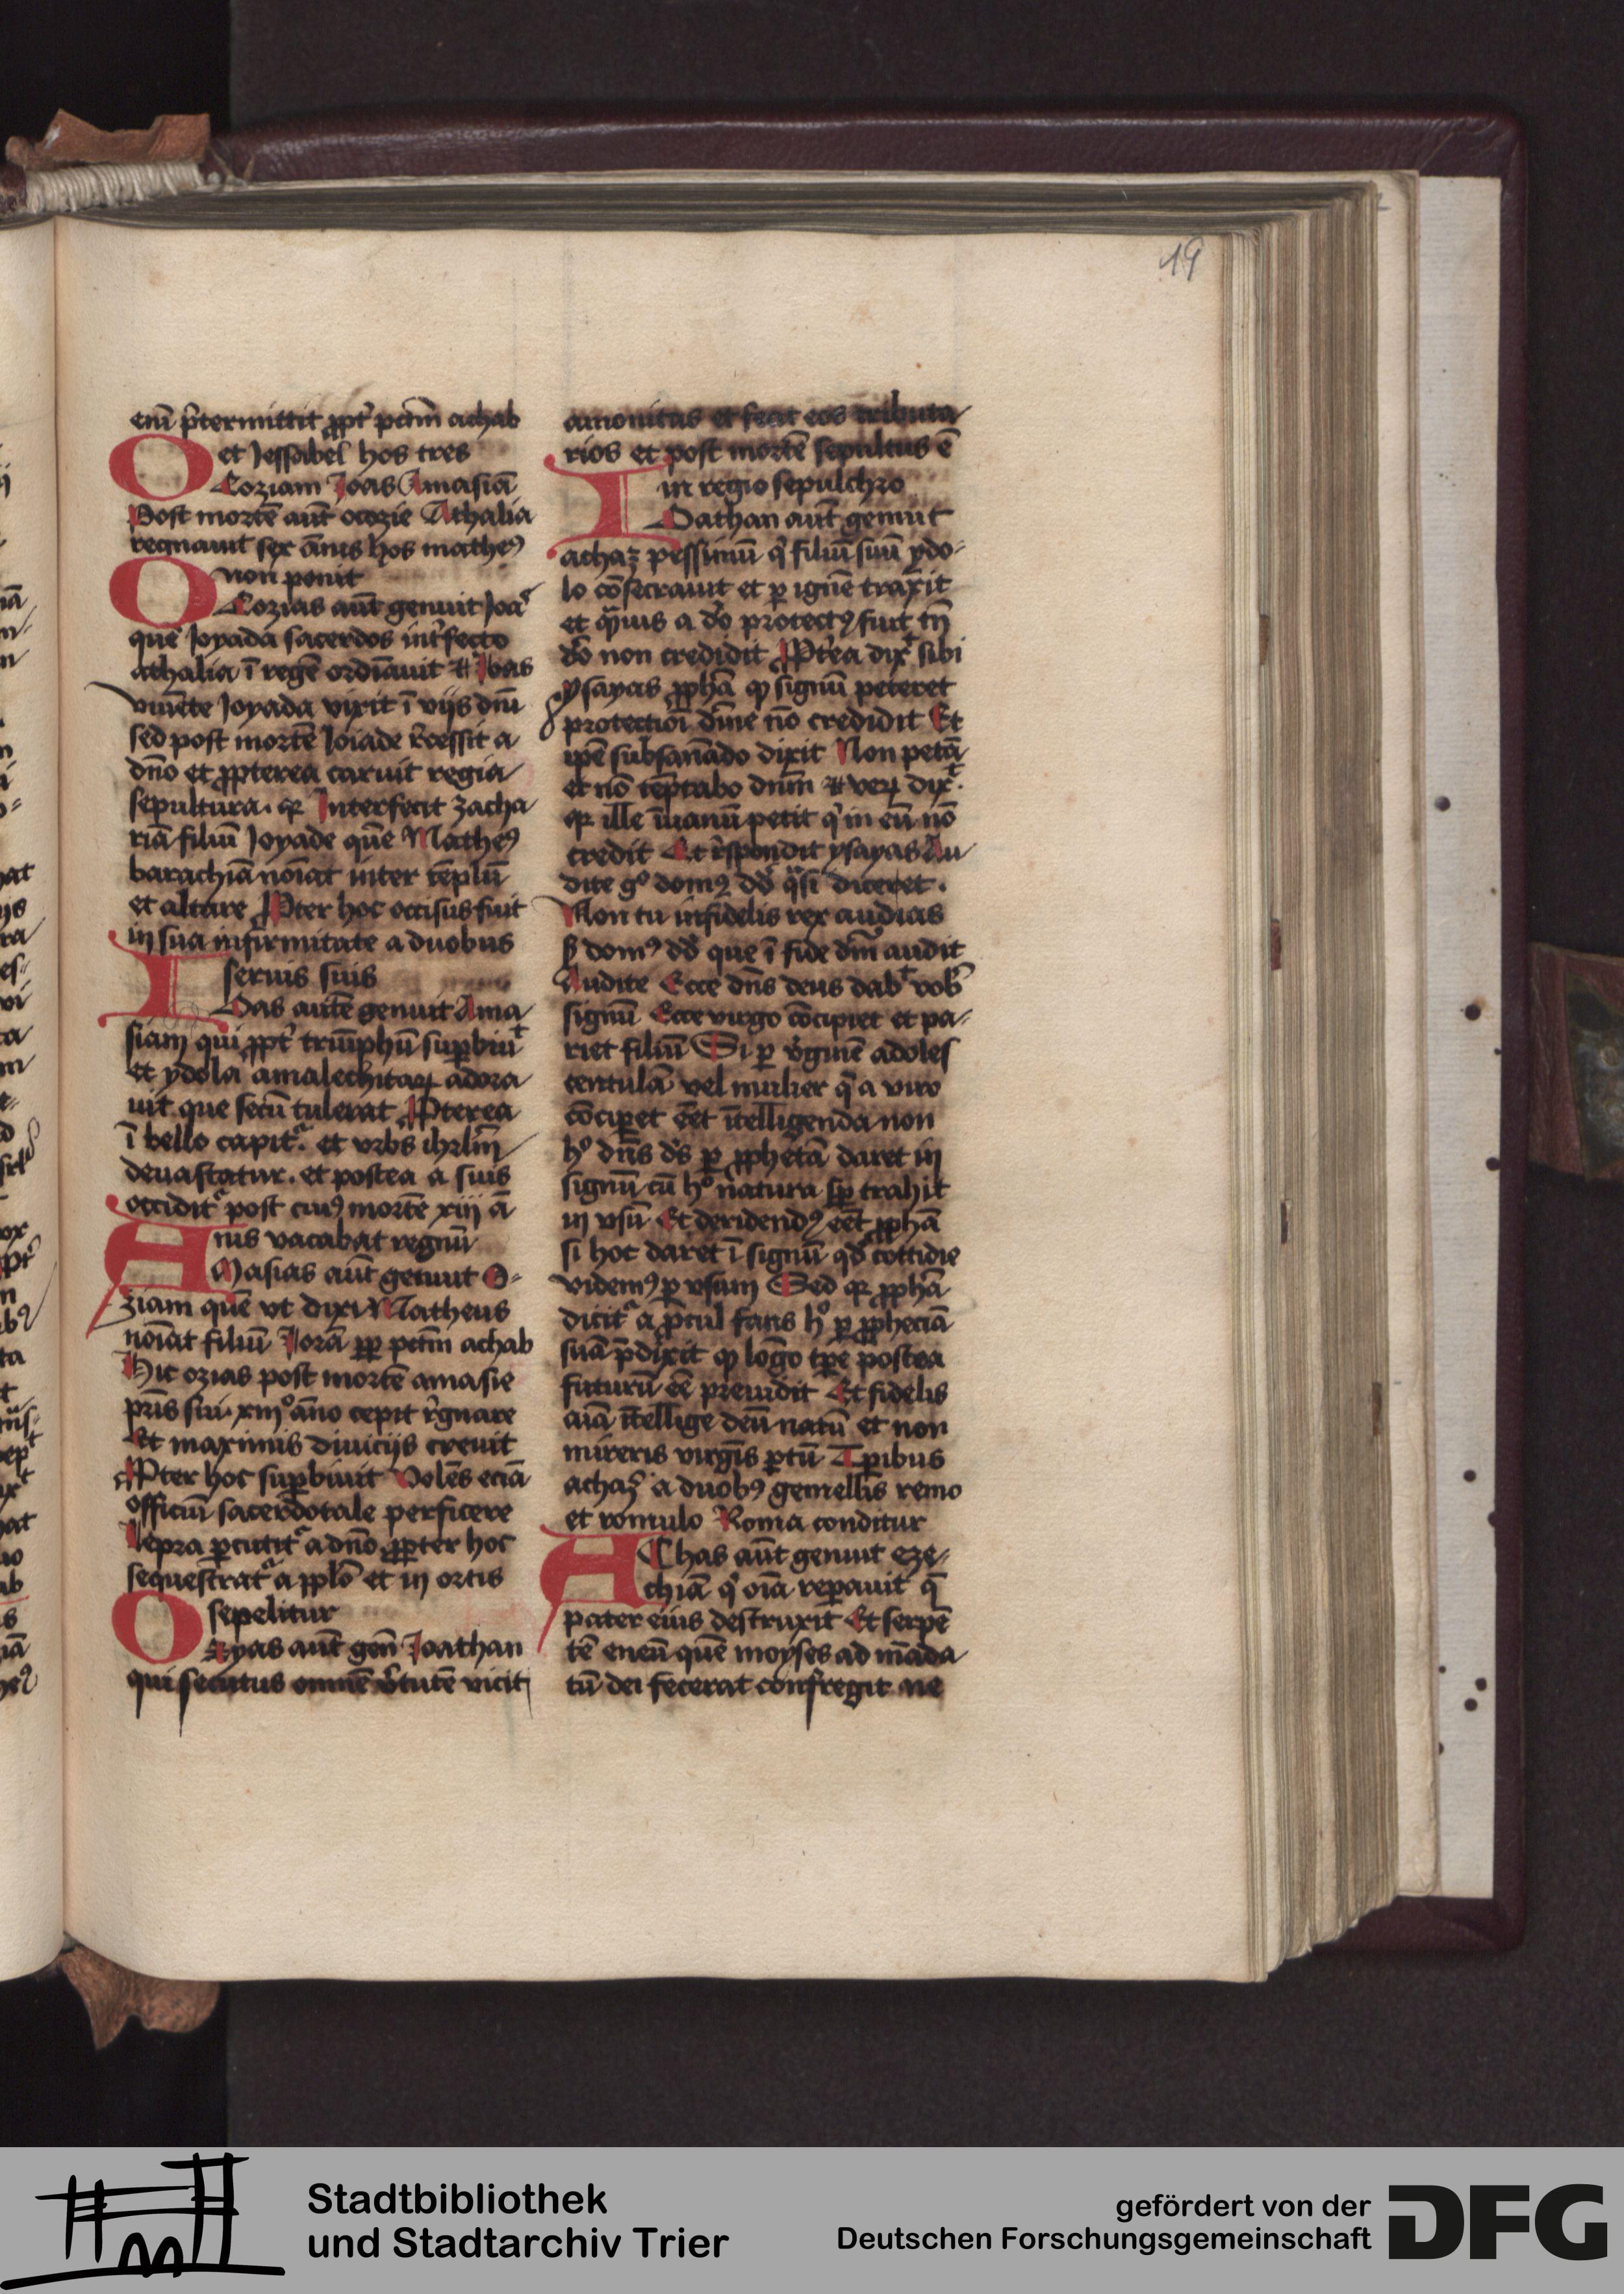 19
enī p̄termittit ꝓpt̾ pctm̄ achab
et Jessabel hos tres
Ocoziam Joas Amasiā
Post mortē aūt ocozie Athalia
regnauit sex ānis hos matheꝰ
non ponit
Ocozias aūt genuit Joa
quē Joyada sacerdos int̾fecto
athalia ī regē ordīauit Joas
viuēte Joyada vixit ī viis dn̄i
sed post mortē Joiade r̾cessit a
dn̄o et ꝓpterea caruit regia
sepultura. qꝛ Interfecit zacha
riā filiū Joyade quē Matheꝰ
barachiā noīat inter tēplū
et altare Pter hoc occisus fuit
in sua infirmitate a duobus
seruis suis
Ioas autē genuit Ama
siam qui ꝓpt̾ triūphū suꝑbiuᵗ
et ydola amalechitaꝝ adora
uit que secū tulerat Pterea
ī bello capit̾. et vrbs ihrlm̄
deuastatur. et postea a suis
occidit̾ post cuiꝰ mortē xiij ā
nis vacabat regnū
AMasias aūt genuit O-
ziam quē vt dixi Matheus
noīat filiū Jorā ꝓp pctm̄ achab
Hic ozias post mortē amasie
pr̄is sui xiijº āno cepit r̾gnare
Et maximis diuicijs creuit
Pter hoc suꝑbiuit Volēs eciā
officiū sacerdotale perficere
lepra ꝑcutit̾ a dn̄o ꝓpter hoc
sequestrat̾ a pplo̅ et in ortis
sepelitur
Ozyas aūt gen̄ Joathan
qui secutus omnē v̾tutē vicit
amonitas et fecit eos tributa
rios et post mortē sepultus ē
in regio sepulchro
Ioathan aūt genuit
achaz pessimū q̇ filiū suū ydo-
lo cōsecrauit et ꝑ ignē traxit
et q̄uis a do̅ protectꝰ fuit tn̄
do̅ non credidit Pt̾ea dixᵗ sibi
ysayas ꝓphā ꝙ signū peteret
protectiōi dīne nō credidit Et
ip̄e subsanādo dixit Non petā
et nō tēptabo dn̄m veꝝ dixᵗ.
qꝛ ille īuanū petit q̇ in eū nō
credit Et r̾spondit ysayas Au
dite gº domꝰ dd̄ q̄si diceret.
Non tu infidelis rex audias
ẞ domꝰ dd̄ que ī fide dn̄m audit
Audite Ecce dn̄s deus dabᵗ vob̄
signū Ecce virgo cōcipiet et pa-
riet filiū Si ꝑ v̾ginē adoles
centulā vel mulier q̄ a viro
cōciꝑet eēt ītelligenda non
hº dn̄s ds̄ ꝑ ꝓphetā daret in
signū cū hº natura sꝑ trahit
in vsū Et deridendꝰ eēt ꝓphā
si hoc daret ī signū qd̄ cottidie
videmꝰ ꝑ vsum Sed qꝛ ꝓphā
dicit̾ a ꝓcul fans hº ꝑ ꝓpheciā
suā p̄dixit ꝙ lōgo tꝑe postea
futurū eē preuidit Et fidelis
aīa ītellige deū natū et non
mireris virgīs ꝑtū Tꝑibus
achaz a duobꝰ gemellis remo
et romulo Roma conditur
AChas aūt genuit eze-
chiā q̇ oīa reꝑauit q̄
pater eius destruxit Et serpē
tē eneū quē moyses ad māda
tū dei fecerat confregit ne
Stadtbibliothek
und Stadtarchiv Trier
gefördert von der
Deutschen Forschungsgemeinschaft
DFG